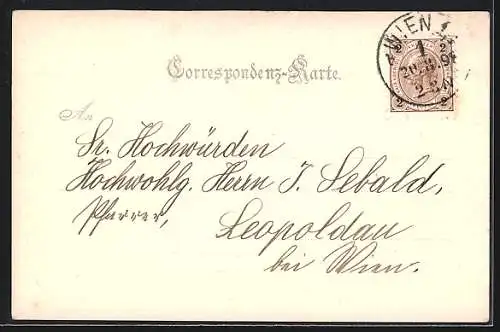 WIEN 1
Correspondenz-Karte.
An
Sr. Hochwürden
Hochwohlg. Herrn J. Sebald,
Pfarrer,
Leopoldau
bei Wien.
2 2